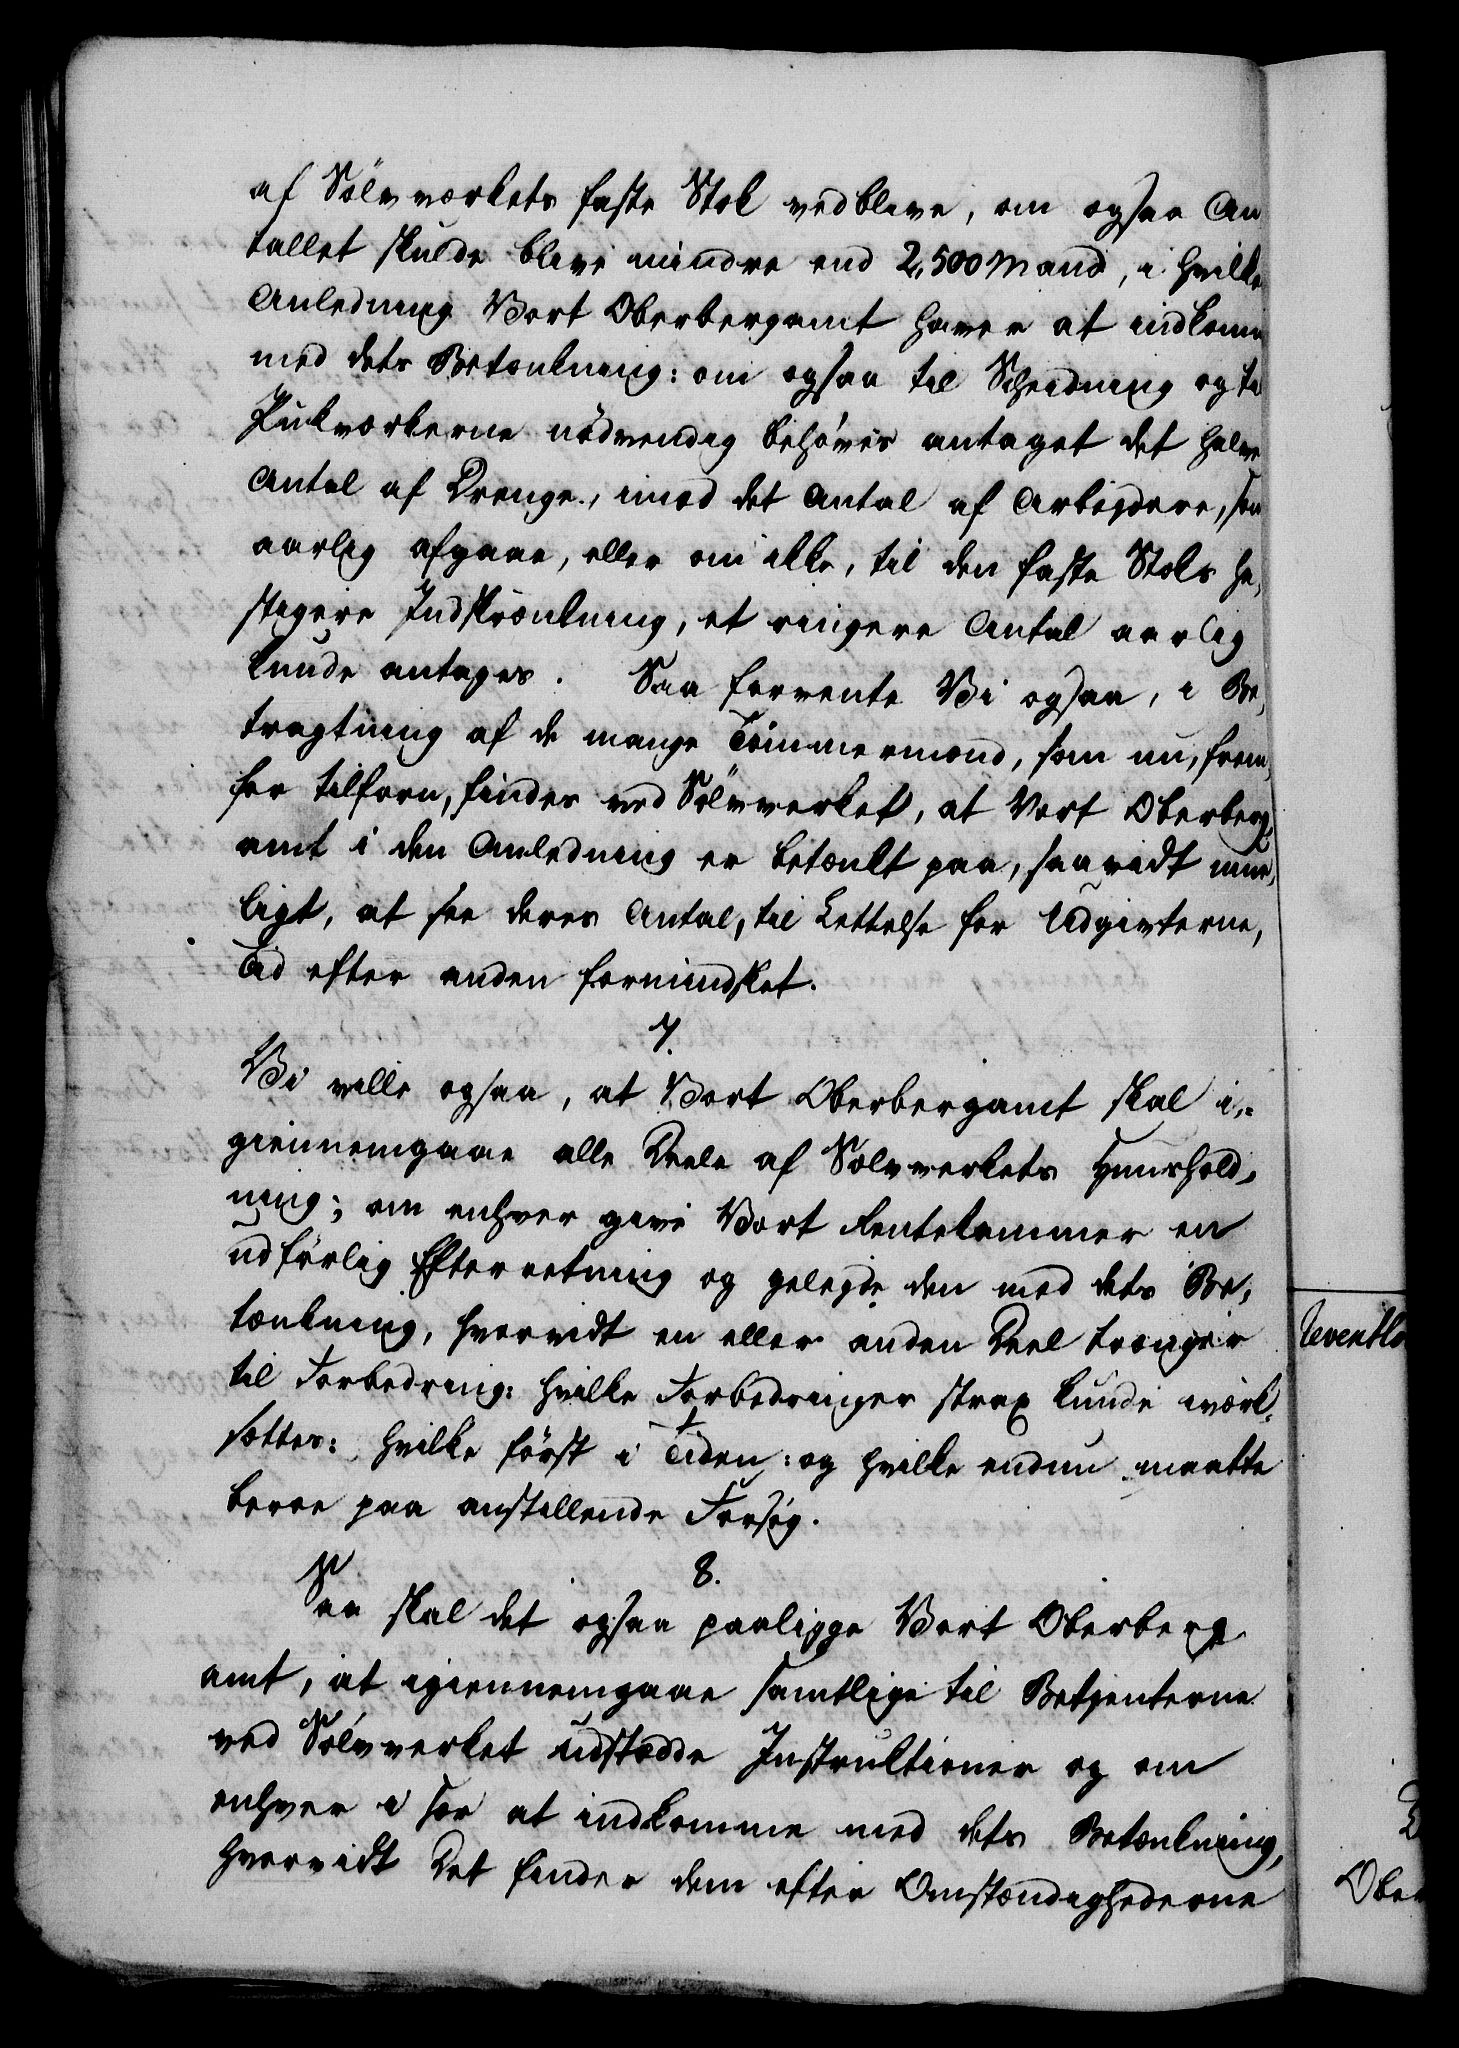 af Sölvværkets faste Stok vedblive, om ogsaa An
tallet skulde blive mindre end 2,500 Mand, i hvilke
Anledning Vort Oberbergamt haver at indkomme
med dets Betænkning: om ogsaa til Scheidning og til
Pukværkerne nödvendig behöves antaget det halve
Antal af Drenge, imod det Antal af Arbejdere, som
aarlig afgaae, eller om ikke, til den faste Stoks ha-
stigere Indskrænkning, et ringere Antal aarlig
kunde antages. Saa forvente Vi ogsaa, i Be-
tragtning af de mange Tömmermænd, som nu, frem-
for tilforn, findes ved Sölvverket, at Vort Oberberg-
amt i den Anledning er betænkt paa, saavidt mue-
ligt, at see deres Antal, til Lettelse for Udgivterne,
Tid efter anden formindsket.
7.
Vi ville ogsaa, at Vort Oberbergamt skal i-
giennemgaae alle Deele af Sölvverkets Huushold-
ning; om enhver give Vort Rentekammer en
udförlig Efterretning og geleyde den med dets Be-
tænkning, hvorvidt en eller anden Deel trænger
til Forbedring: hvilke Forbedringer strax kunde iværk-
sættes: hvilke först i Tiden: og hvilke endnu maatte
beroe paa anstillende Forsög.
8.
Saa skal det ogsaa paaligge Vort Oberberg-
amt, at igiennemgaae samtlige til Betjenterne
ved Sölvverket udstædde Instruktioner og om
enhver i sær at indkomme med dets Betænkning,
hvorvidt Det finder dem efter Omstændighederne